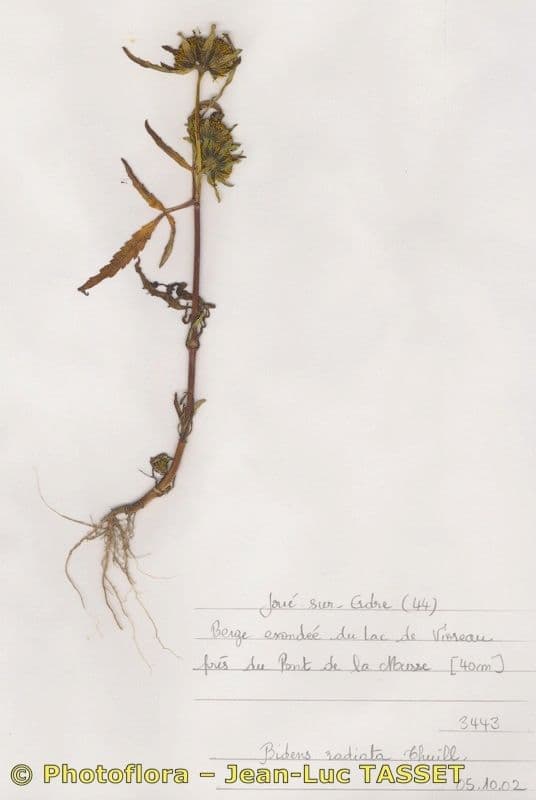 Joué-sur-Erdre (44)
Berge exondée du Lac de Vioreau
près du Pont de la Musse [40m]
3443
Bidens radiata Thuill.
© Photoflora – Jean-Luc TASSET
05.10.02